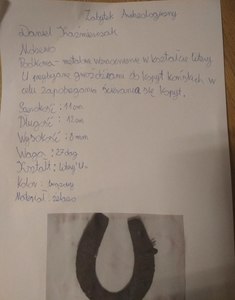 Zabytek Archeologiczny
Daniel Kaźmierczak
Podkowa - metalowe wzmocnienie w kształcie litery
U mocowane gwoździami do kopyt końskich w
celu zapobiegania ścierania się kopyt.
Szerokość: 11 cm
Długość: 12 cm
Wysokość: 8 mm
Waga: 27 dag
Kształt: litery U
Kolor: brązowy
Materiał: żelazo